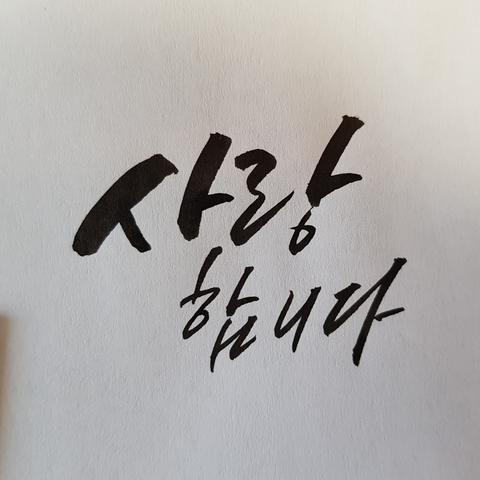 사랑
합니다